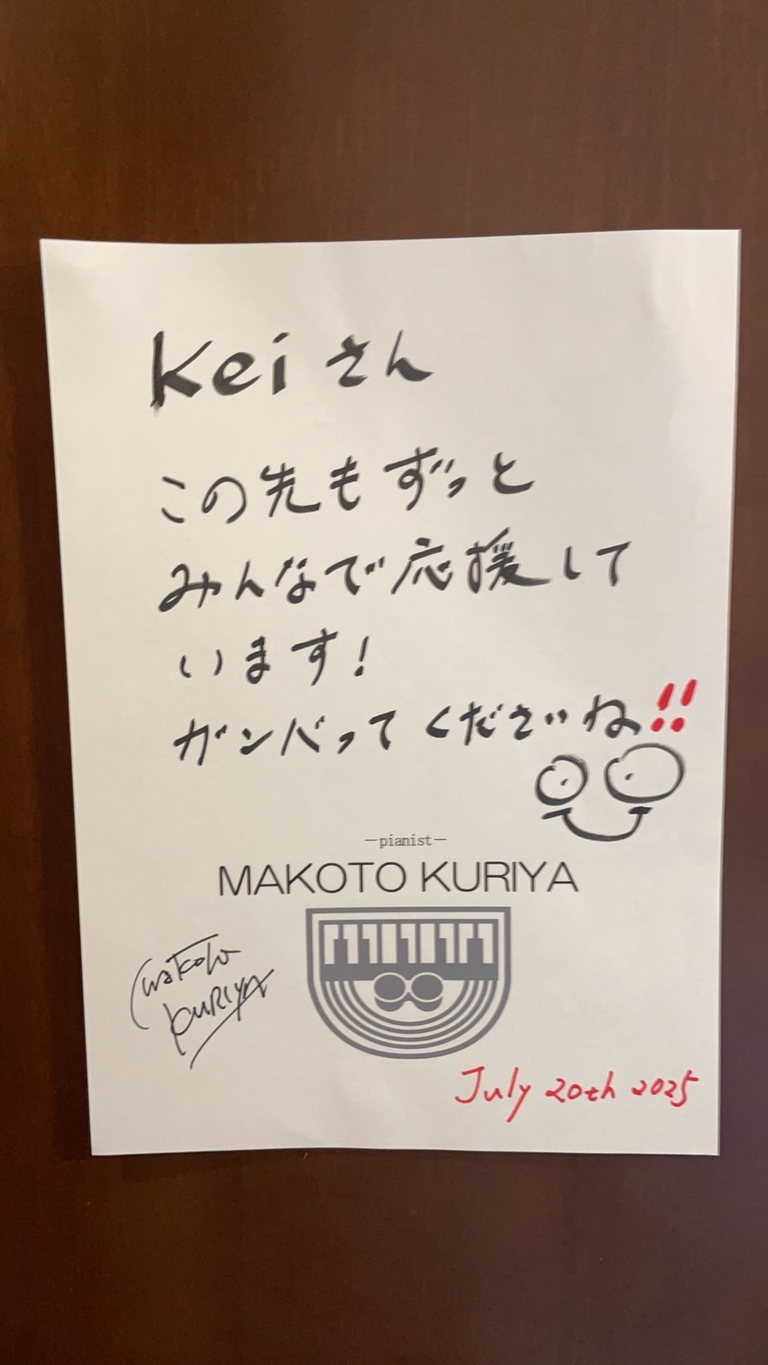 Kei さん
この先もずっと
みんなで応援して
います!
ガンバってくださいね!!
—pianist—
MAKOTO KURIYA
Makoto
KURIYA
July 20th 2025